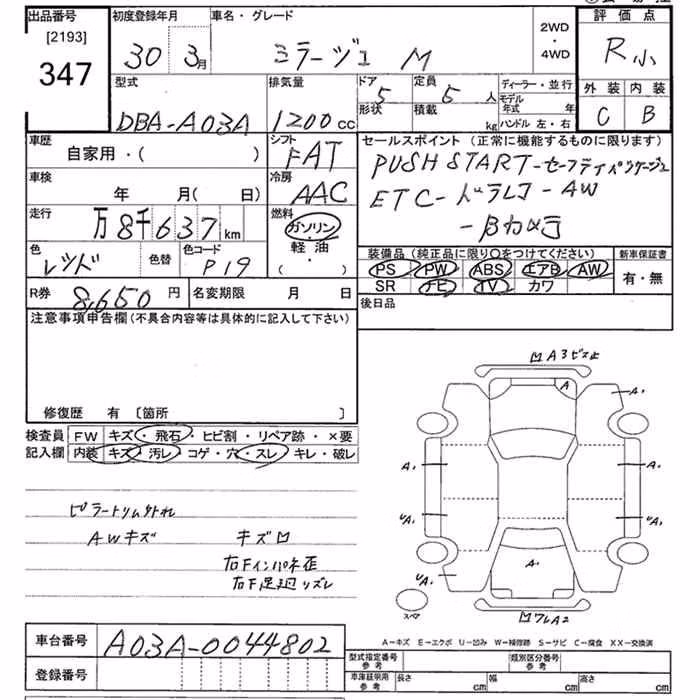 出品番号 初度登録年月 車名・グレード 2WD・4WD 評価点
[2193]
347
30 3月 ミラージュ M R小
型式 排気量 ドア 形状 定員 積載 ディーラー・並行 外装 内装
DBA-A03A 1200cc 5 5人 kg モデル年式 年 ハンドル 左・右 C B
車歴 シフト セールスポイント (正常に機能するものに限ります)
自家用・( ) FAT PUSH START-セーフティパッケージ
車検 冷房 ETC-ドラレコ-AW
年 月(日) AAC
走行 燃料
万 8千 637 km ガソリン・軽油・( )
色 色替 色コード 装備品 (純正品に限り○をつけてください) 新車保証書
レッド P19 PS PW ABS エアB AW 有・無
SR ナビ TV カワ
R券 8,650円 名変期限 月 日 後日品
注意事項申告欄(不具合内容等は具体的に記入して下さい)
修復歴 有 〔箇所 〕
検査員 FW キズ・飛石・ヒビ割・リペア跡・×要
記入欄 内装 キズ・汚レ・コゲ・穴・スレ・キレ・破レ
ピラートリム外れ
AWキズ キズM
右Fインパネ歪
右F足廻リズレ
MA3ビス止
A
A₁
A₁ A₁
UA₁ UA₁
A₁
UA₁
スペア
MワレA2
A〜キズ E〜エクボ U〜凹み W〜補修跡 S〜サビ C〜腐食 XX〜交換済
車台番号 A03A-0044802
型式指定番号 参考 類別区分番号 参考
登録番号
車庫証明用 参考 長さ cm 幅 cm 高さ cm